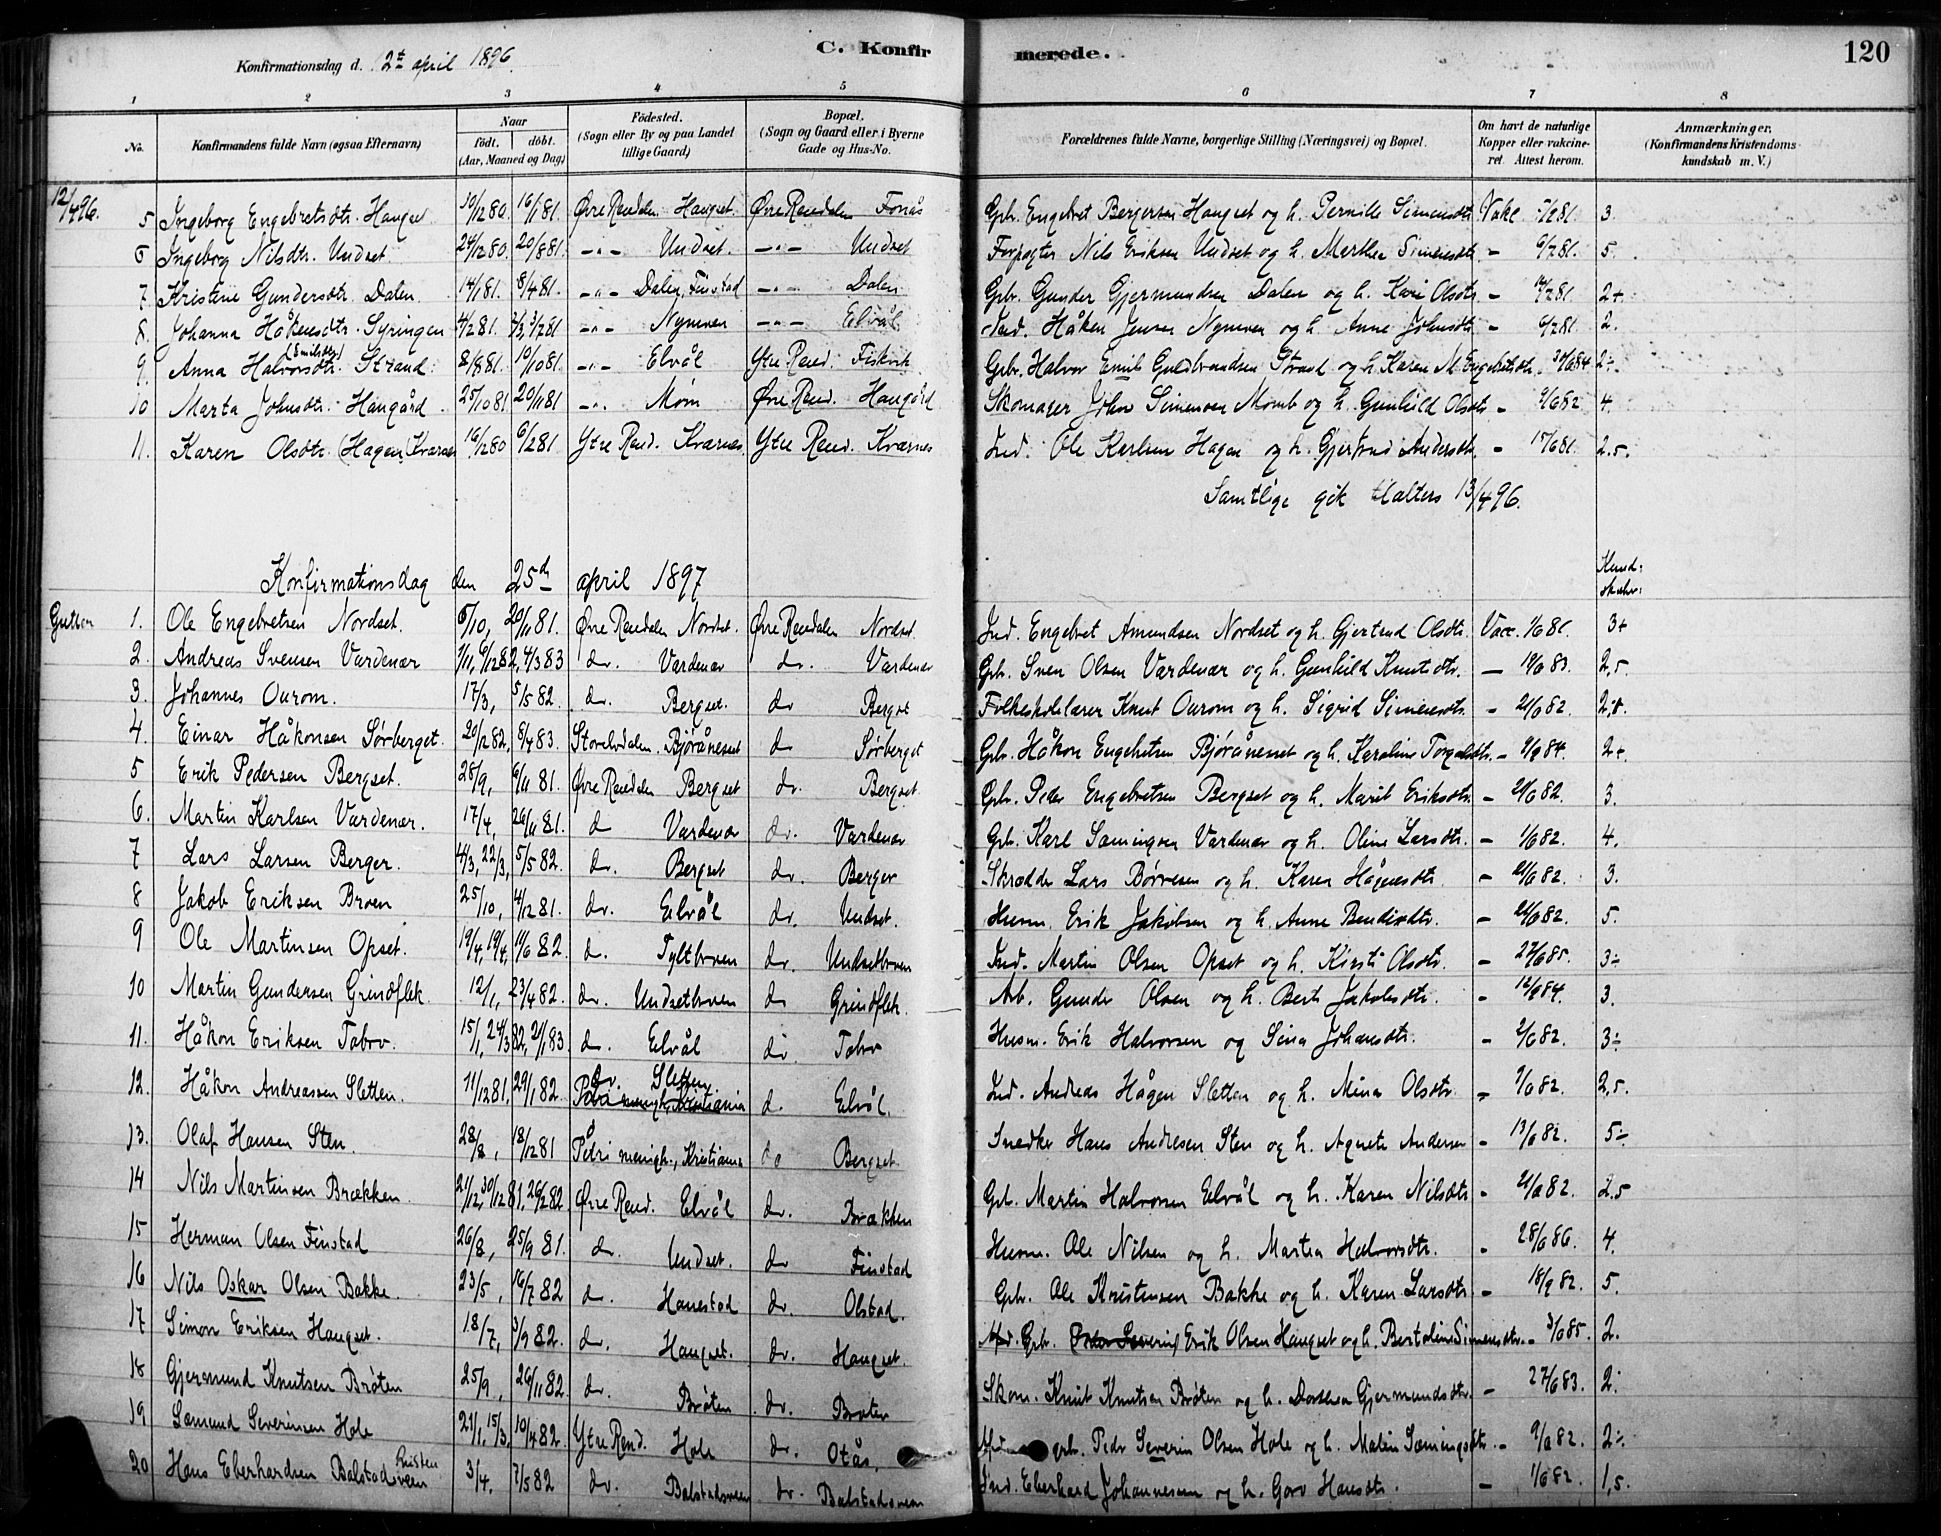 Konfirmationsdag d. 12te april 1896. C. Konfirmerede. 120
1 2 3 4 5 6 7 8
No. Konfirmandens fulde Navn (ogsaa Efternavn) Naar født. døbt. (Aar, Maaned og Dag) Fødested. (Sogn eller By og paa Landet tillige Gaard) Bopæl. (Sogn og Gaard eller i Byerne Gade og Hus-No. Forældrenes fulde Navne, borgerlige Stilling (Næringsvei) og Bopæl. Om havt de naturlige Kopper eller vakcineret. Attest herom. Anmærkninger. (Konfirmandens Kristendomskundskab m. V.)
12/4 96. 5 Ingeborg Engebretsdtr. Hangset 10/12 80. 16/1 81. Øvre Rendalen Hangset. Øvre Rendalen Fonås Gbr. Engebret Bergersen Hangset og h. Pernille Simensdtr Vakc. 3.
6 Ingeborg Nilsdtr. Undset 24/12 80. 20/8 81. -"- Undset. -"- Undset Forpagter Nils Eriksen Undset og h. Marthea Simensdtr - 5.
7 Kristine Gundersdtr. Dalen 14/1 81. 8/4 81. -"- Dalen, Finstad -"- Dalen Gbr. Gunder Gjermundsen Dalen og h. Kari Olsdtr - 2+
8. Johanna Håkensdtr. Syringen 4/2 81. -"- Nymoen -"- Elvål Ind. Håken Jensen Nymoen og h. Anne Johnsdtr - 2.
9. Anna Halvorsdtr. (Emilsdtr) Strand 2/8 81. 10/10 81. -"- Elvål Ytre Rend. Fiskvik Gbr. Halvor Emil Guldbrandsen Strand og h. Karen M. Engebretsdtr. 2÷.
10 Marta Johnsdtr. Haugård 25/10 81 20/11 81 -"- Møm Øvre Rend. Haugård Skomager John Simensen Momb og h. Gunhild Olsdtr - 9/6 82. 4.
11. Karen Olsdtr. (Hagen) Kværnes 16/12 80 6/2 81. Ytre Rend. Kværnes Ytre Rend. Kværnes Ind. Ole Karlsen Hagen og h. Gjertrud Andersdtr. - 17/6 81. 2.5.
Samtlige gik til alters 13/4 96.
Konfirmationsdag den 25de april 1897
Gutter 1. Ole Engebretsen Nordset. 6/10, 20/11 81. Øvre Rendalen Nordset. Øvre Rendalen Nordset. Ind. Engebret Amundsen Nordset og h. Gjertrud Olsdtr. Vacc. 1/6 81. 3+
2. Andreas Svensen Vardenær 1/11, 6/12 82, 4/3 83 do. Vardenær do. Vardenær Gbr. Sven Olsen Vardenær og h. Gunhild Knutsdtr. - 19/6 83. 2,5.
3. Johannes Ourom. 17/3, 5/5 82. do. Bergset. do Bergset Folkeskolelærer Knut Ourom og h. Sigrid Simensdtr. - 21/6 82.
4. Einar Håkonsen Sørberget. 20/12 82, 8/4 83. Storelvdalen. Bjørånesset do Sørberget Gbr. Håkon Engebretsen Bjørånesset og h. Karoline - 9/9 84. 2+.
5 Erik Pedersen Bergset. 28/9, 6/11 81. Øvre Rendalen Bergset do. Bergset. Gbr. Peder Engebretsen Bergset og h. Marit Eriksdtr. - 21/6 82. 3.
6. Martin Karlsen Vardenær. 17/4, 26/11 81. do Vardenær do. Vardenær Gbr. Karl Sæmingsen Vardenær og h. Oline Larsdtr. - 1/6 82. 4.
7 Lars Larsen Berger. 4/3, 22/3, 5/5 82. do. Bergset do. Berger Skrædder Lars Børresen og h. Karen Hågensdtr. - 21/6 82. 3.
8 Jakob Eriksen Broen 25/10, 4/12 81. do. Elvål do. Undset. Husm. Erik Jakobsen og h. Anne Bendixdtr. - 21/6 82. 5.
9 Ole Martinsen Opset. 19/4, 19/4, 11/6 82 do. Tyltbroen do. Undsetbroen Ind. Martin Olsen Opset og h. Kirsti Olsdtr. - 27/6 85. 3÷
10 Martin Gundersen Grindflek. 12/1, 23/4 82. do. Undsetbroen do Grindflek. Arb. Gunder Olsen og h. Berte Jakobsdtr. - 3.
11. Håkon Eriksen Tabro. 15/1, 24/3 82, 21/1 83. do. Elvål do Tabro Husm. Erik Halvorsen og Sina Johansdtr. - 3÷
12. Håkon Andreassen Sletten. 11/12 81, 29/1 82. do. Sletten. do. Elvål. Ind. Andreas Hågen Sletten og h. Mina Olsdtr. - 2,5.
13. Olaf Hansen Sten. 28/8, 18/12 81 Petri menigh., Kristiania do Bergset. Snedker Hans Andresen Sten og h. Agnete Andersen - 13/6 82. 5÷
14 Nils Martinsen Brækken. 21/12, 30/12 81, 26/2 82 Øvre Rend. Elvål do. Brækken Gbr. Martin Halvorsen Elvål og h. Karen Nilsdtr - 21/6 82. 2.5
15 Herman Olsen Finstad 26/8, 25/9 81. do. Undset. do Finstad Husm. Ole Nilsen og h. Martea Halvorsdtr. - 28/6 86. 4.
16 Nils Oskar Olsen Bakke. 23/5, 16/7 82 do. Hanestad do. Olstad. Gbr. Ole Kristensen Bakke og h. Karen Larsdtr. - 18/9 82. 5.
17 Simon Eriksen Hangset. 18/7, 3/9 82. do. Hangset. do. Hangset. Gbr. Erik Olsen Hangset og h. Bertoline Simensdtr. - 3/6 85. 2.
18 Gjermund Knutsen Brøten 25/9, 26/11 82. do. Brøten do. Brøten Skom. Knut Knutsen Brøten og h. Dorthea Gjermundsdtr. - 27/6 83. 2÷
19 Sæmund Severinsen Hole 21/1, 15/3, 10/4 82. Ytre Rend. Hole do. Otås. gbr. Peder Severin Olsen Hole og h. Malin Sæmingsdtr. - 2÷.
20 Hans Eberhardsen Balstadsveen 3/4, 7/5 82 do. Balstadsveen do. Balstadsveen Ind. Eberhard Johannesen og h. Goro Hansdtr. - 1/6 82. 1,5.